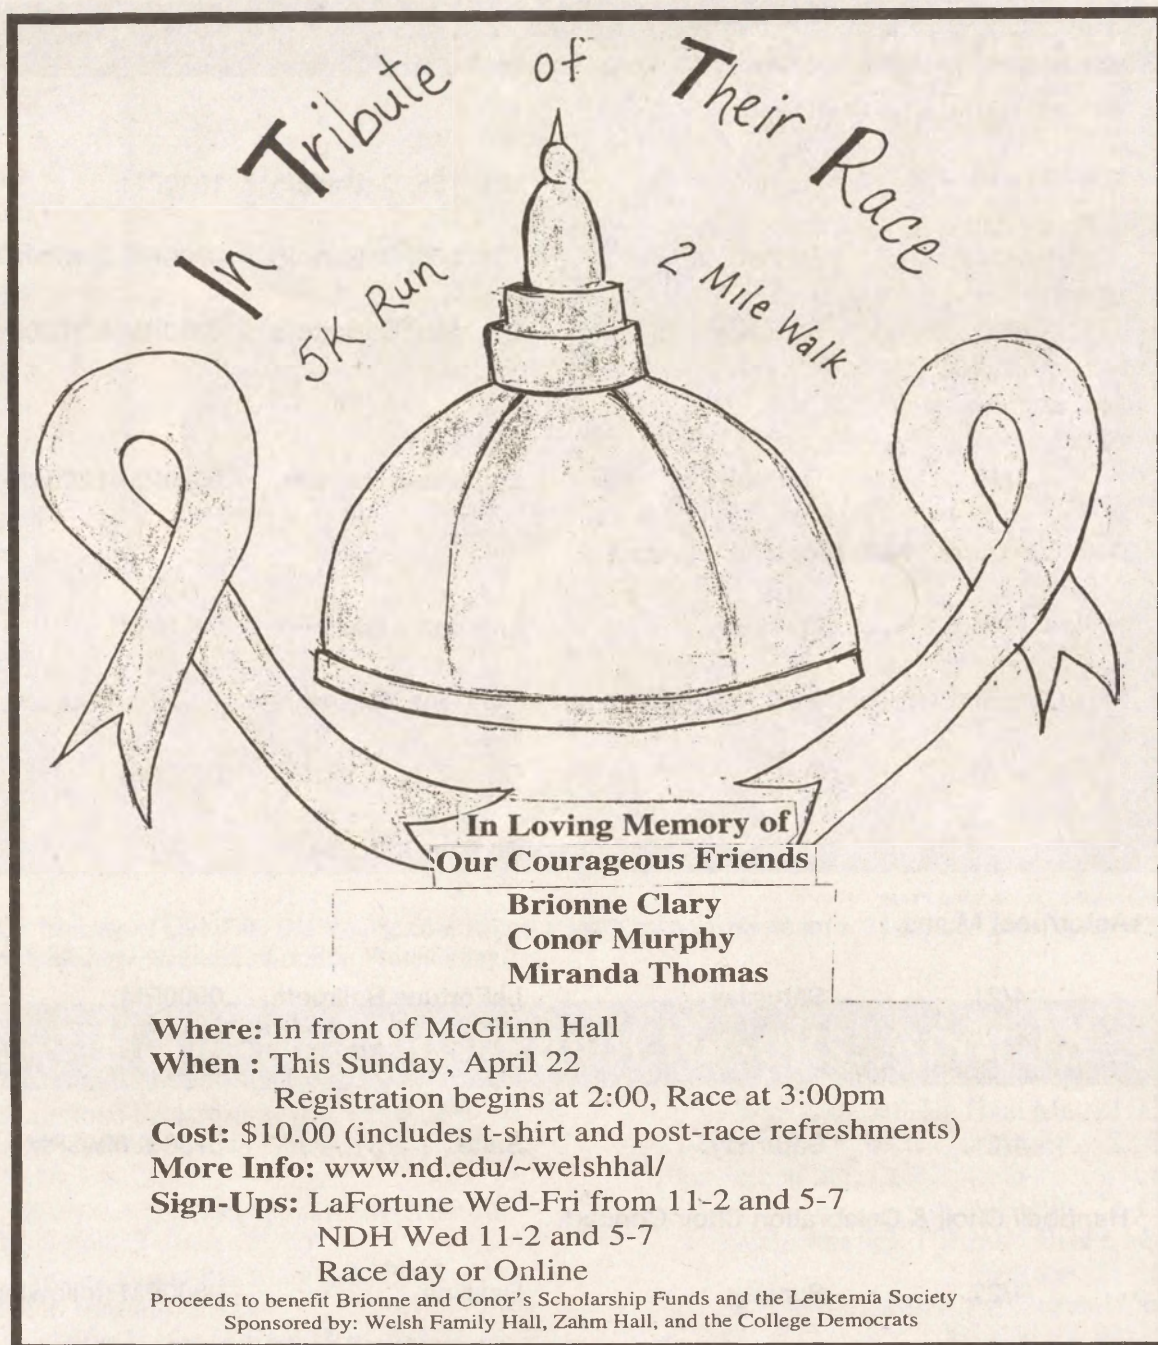 In Tribute of Their Race
5K Run
2 Mile Walk
In Loving Memory of
Our Courageous Friends
Brionne Clary
Conor Murphy
Miranda Thomas
Where: In front of McGlinn Hall
When : This Sunday, April 22
Registration begins at 2:00, Race at 3:00pm
Cost: $10.00 (includes t-shirt and post-race refreshments)
More Info: www.nd.edu/~welshhal/
Sign-Ups: LaFortune Wed-Fri from 11-2 and 5-7
NDH Wed 11-2 and 5-7
Race day or Online
Proceeds to benefit Brionne and Conor's Scholarship Funds and the Leukemia Society
Sponsored by: Welsh Family Hall, Zahm Hall, and the College Democrats